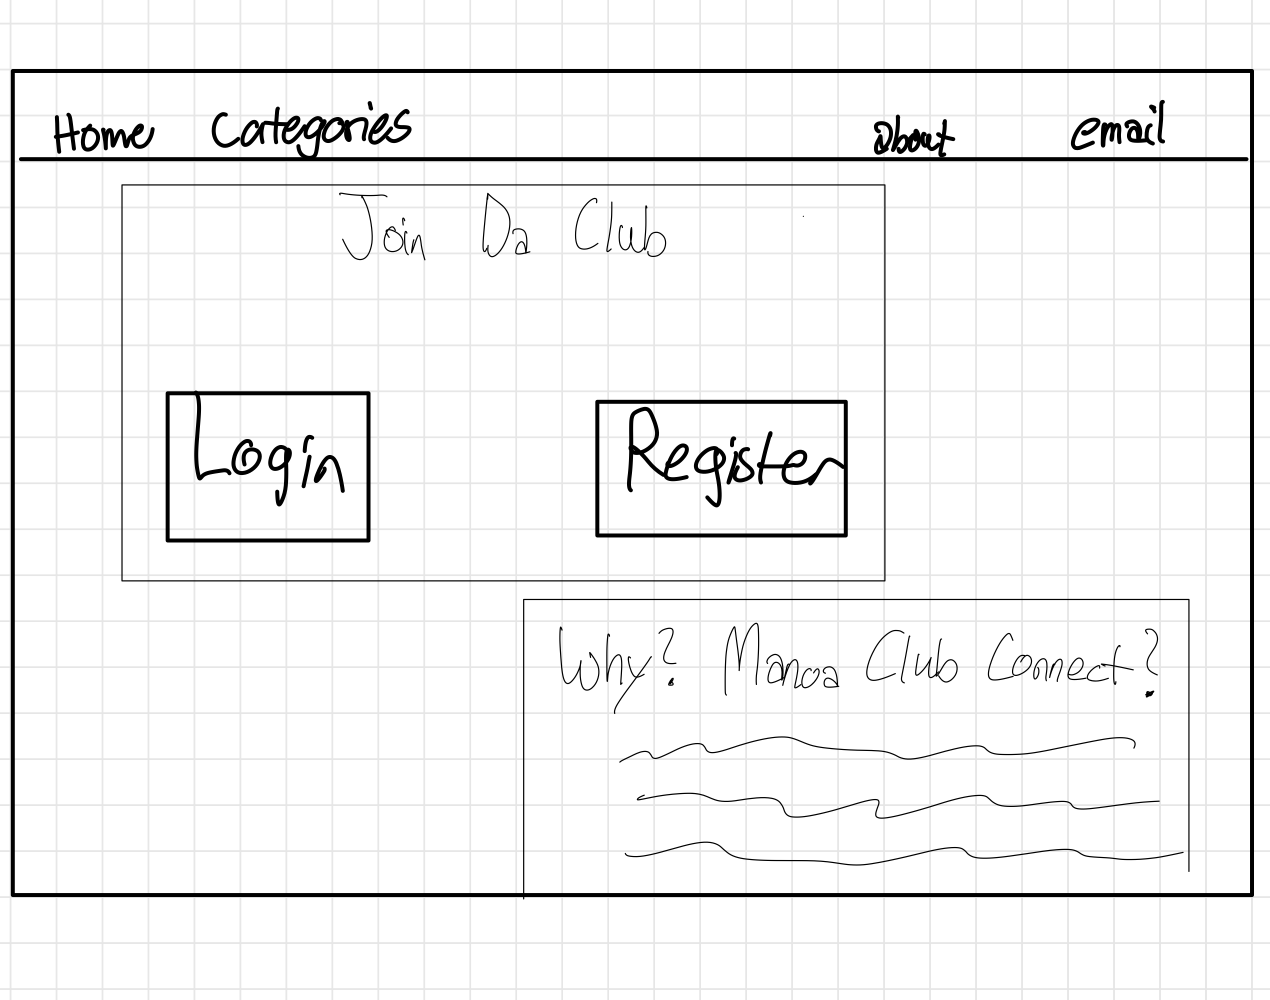 Home Categories about email
Join Da Club
Login Register
Why? Manoa Club Connect?